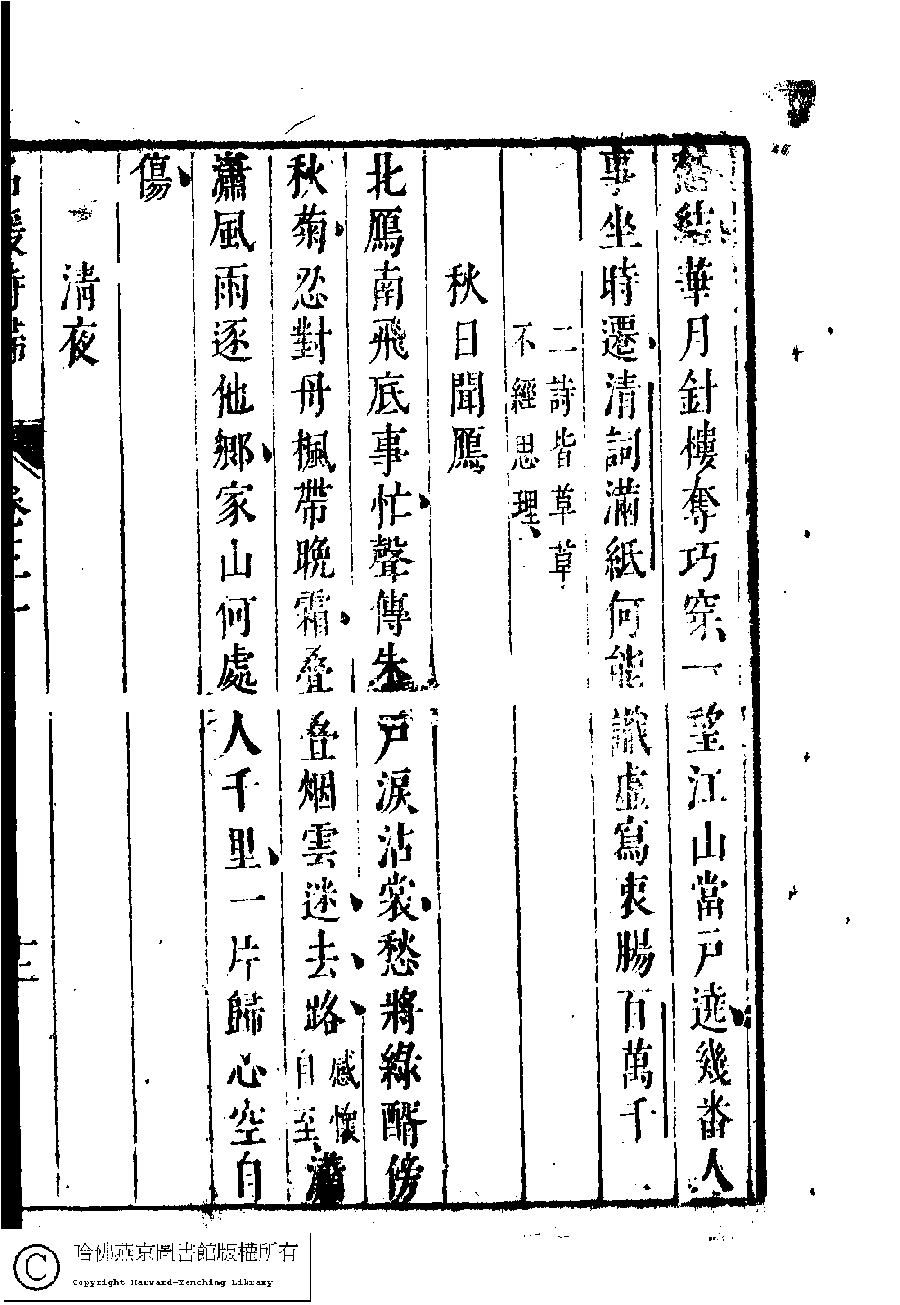 愁結華月針樓奪巧穿一望江山當戸遶幾番人
事坐時遷清詞滿紙何能識虛寫衷腸百萬千
二詩皆草草
不經思理
秋日聞鴈
北鴈南飛底事忙聲傳朱戸淚沾裳愁將綠醑傍
秋菊忍對丹楓帶晩霜叠叠烟雲迷去路感懷自至瀟
瀟風雨逐他鄉家山何處人千里一片歸心空自
傷
清夜
名媛詩歸 卷三十一
十三
哈佛燕京圖書館版權所有
Copyright Harvard-Yenching Library